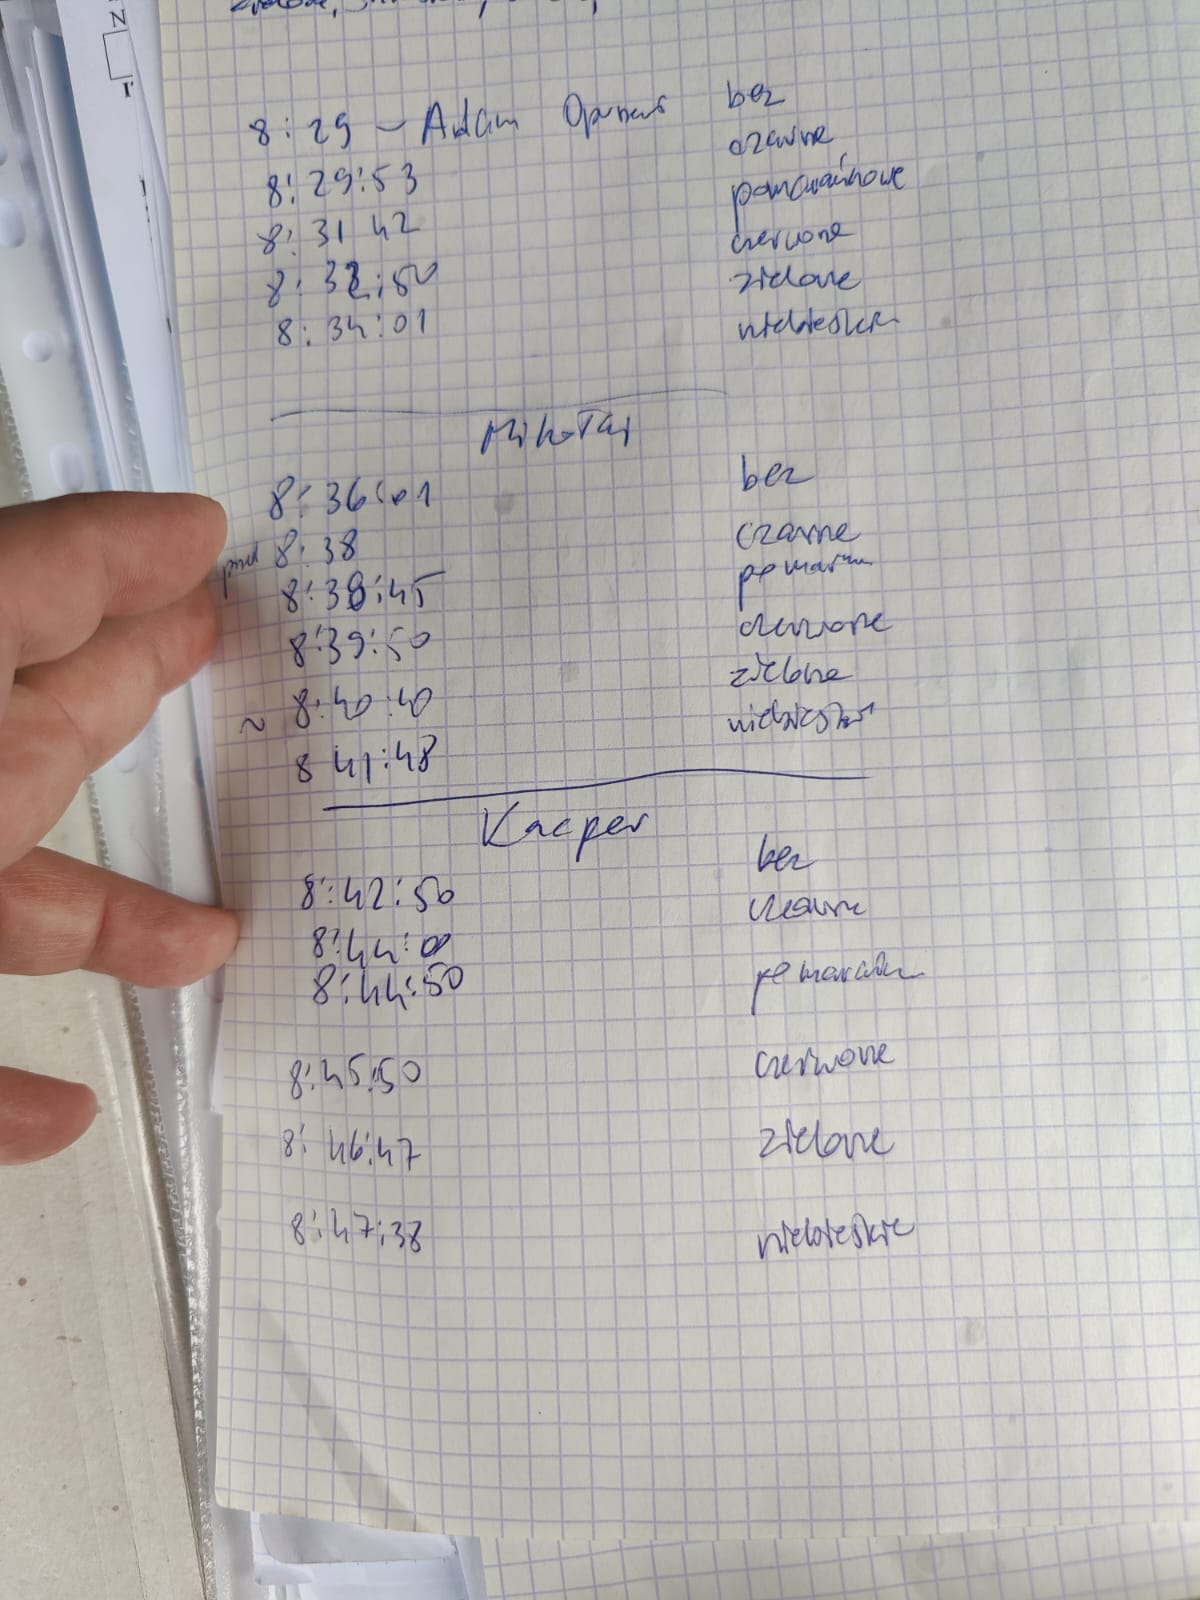 zielone,
8:29 – Adam bez
8:29:53 czarne
8:31 42 pomarańczowe
8:32:50 czerwone
8:34:01 zielone
niebieskie
Mikołaj
8:36:01 bez
przed 8:38 czarne
8:38:45 pomarań
8:39:50 czerwone
~ 8:40:40 zielone
8 41:48 niebieskie
Kacper
8:42:50 bez
8:44:0 czarne
8:44:50 pomarańcz
8:45:50 czerwone
8:46:47 zielone
8:47:38 niebieskie